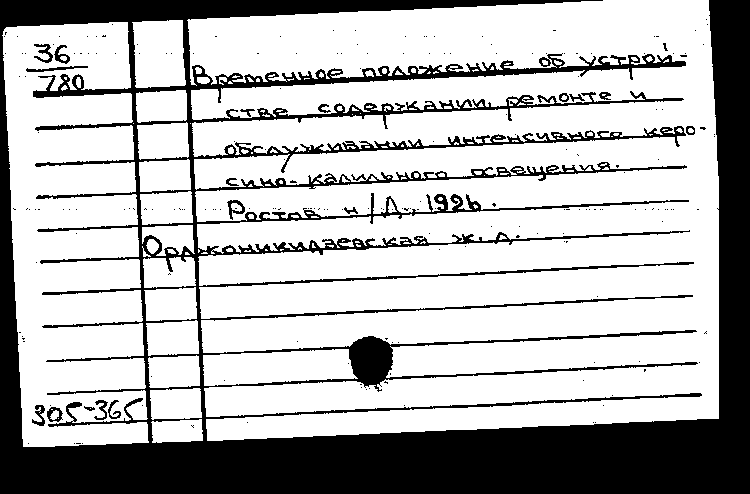 36
780
Временное положение об устрой-
стве, содержании, ремонте и
обслуживании интенсивного керо-
сино-калильного освещения.
Ростов н/Д., 1926.
Орджоникидзевская ж. д.
305-365